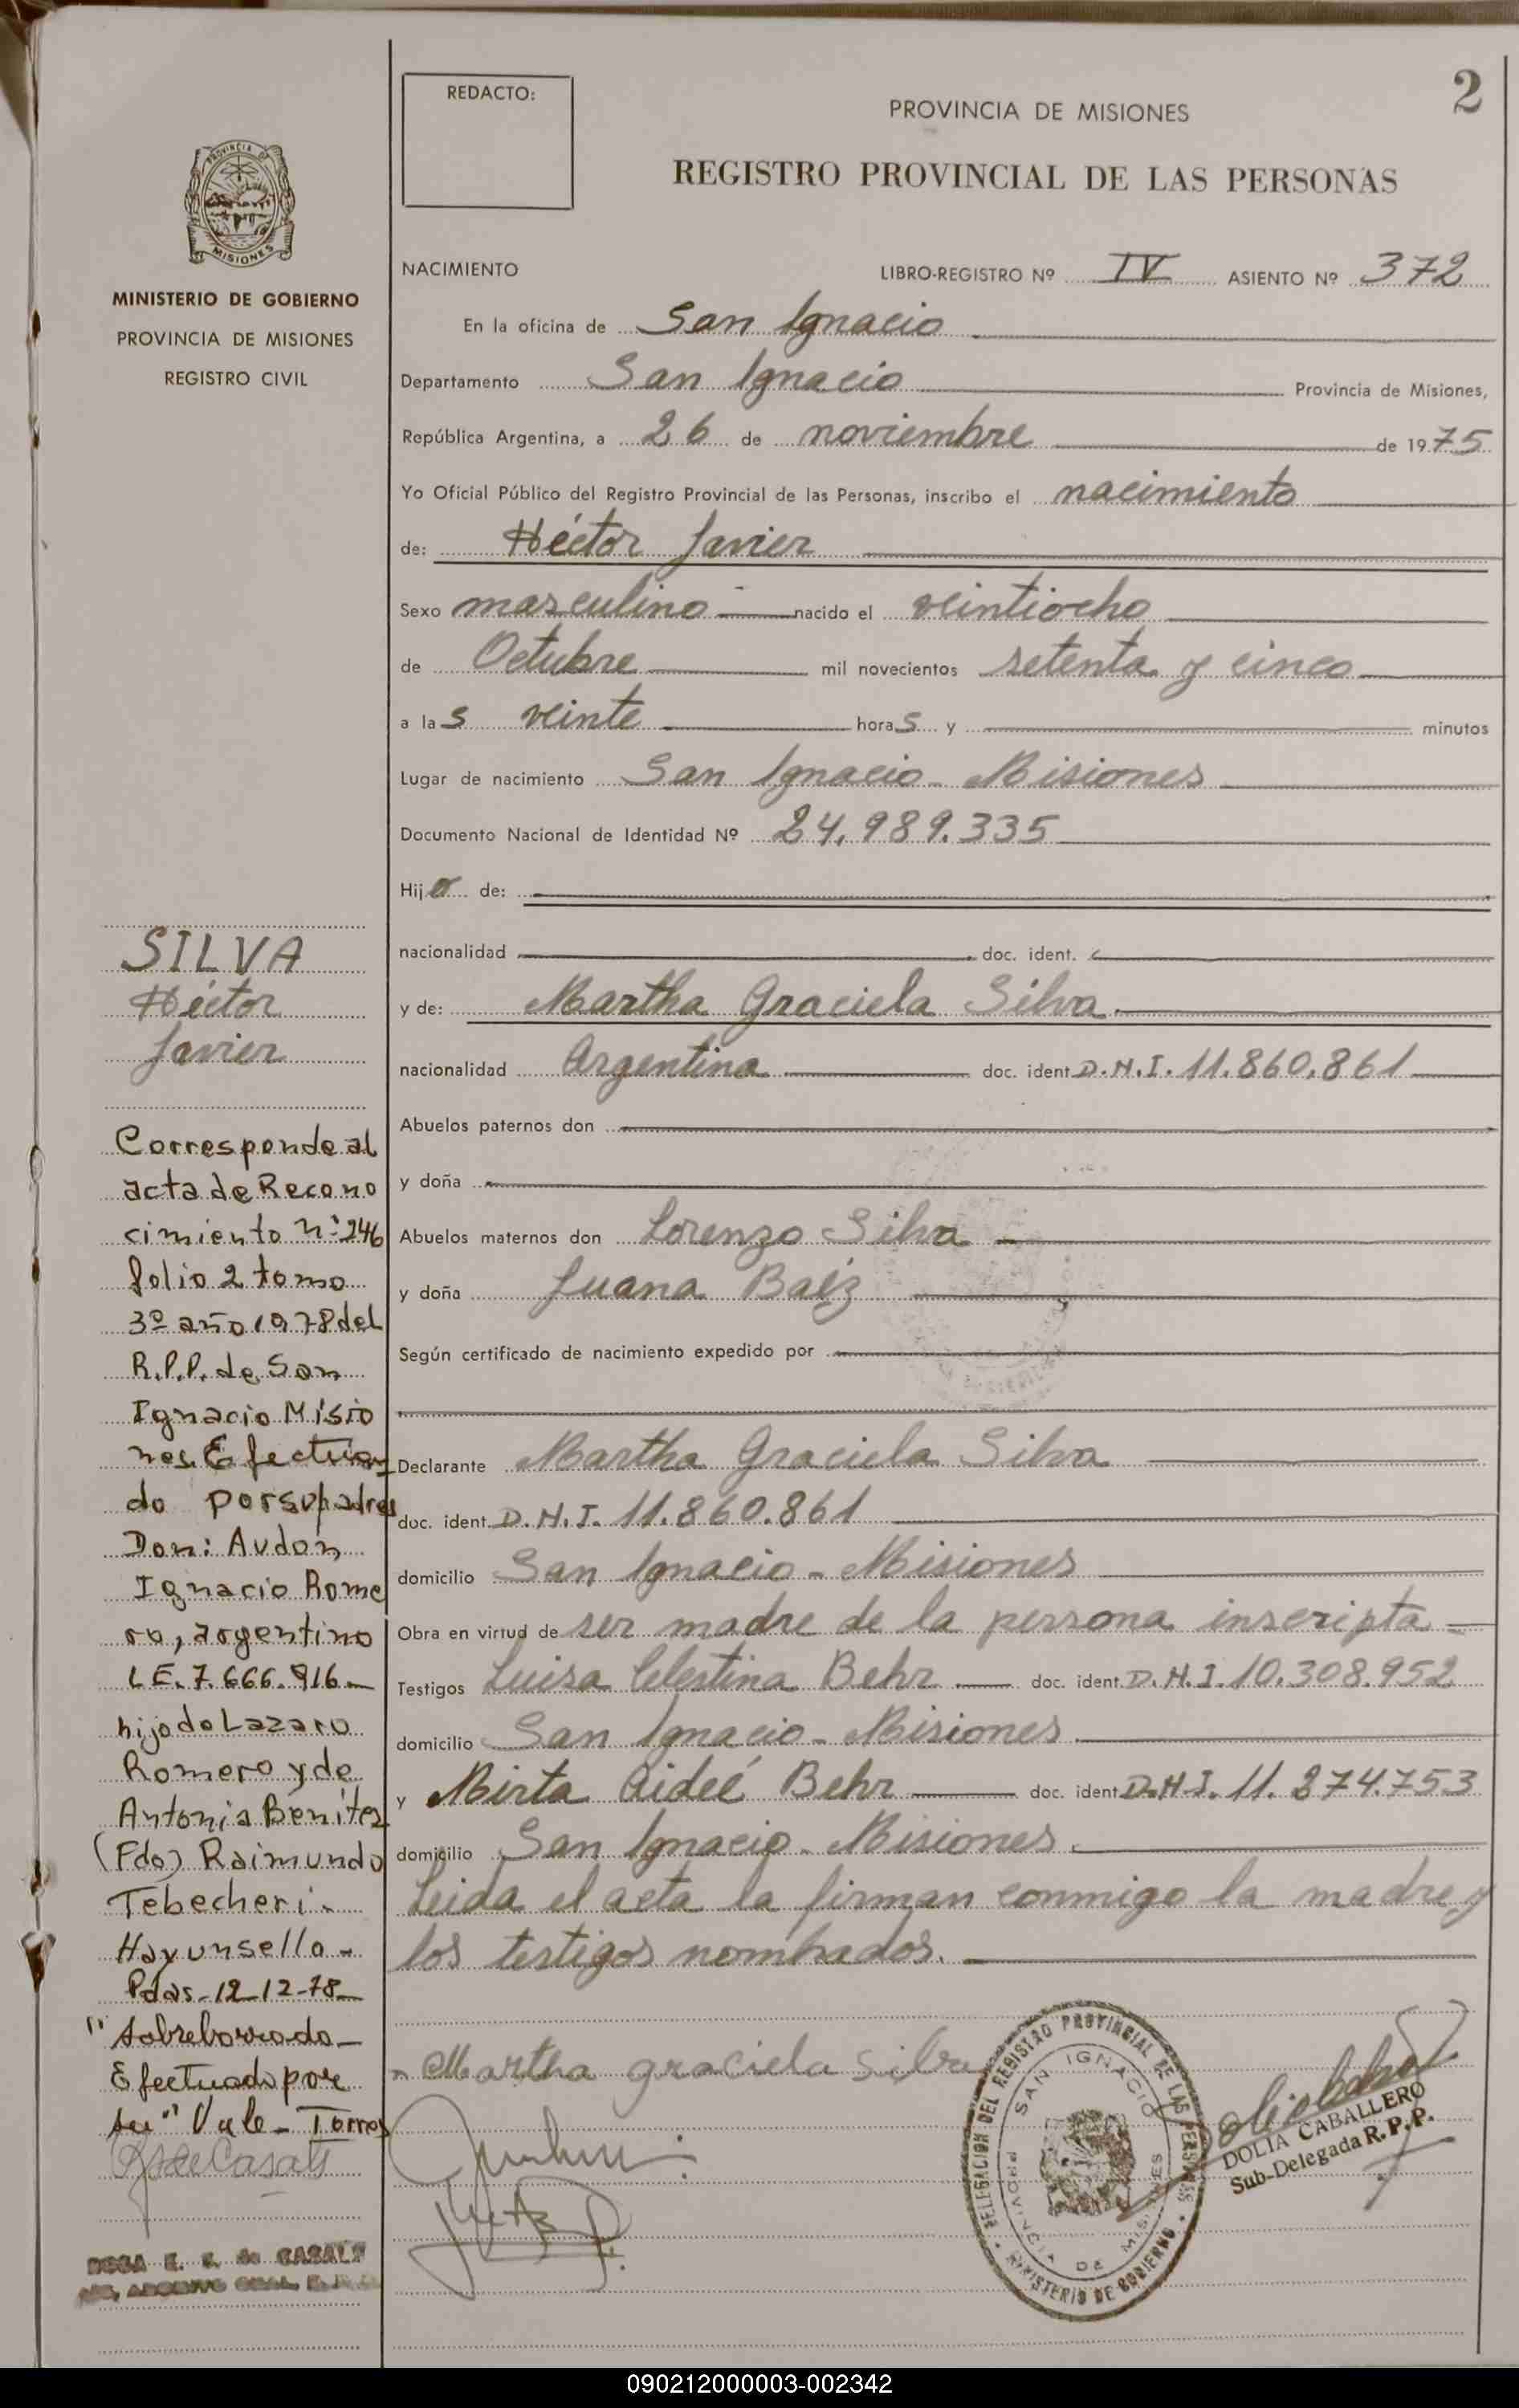 2
REDACTO:
PROVINCIA DE MISIONES
REGISTRO PROVINCIAL DE LAS PERSONAS
PROVINCIA DE
MISIONES
MINISTERIO DE GOBIERNO
PROVINCIA DE MISIONES
REGISTRO CIVIL
SILVA
Héctor
Javier
Corresponde al
acta de Recono
cimiento nº 246
folio 2 tomo
3º año 1978 del
R.P.P. de San
Ignacio Misio
nes. Efectua
do por su padres
Don: Audon
Ignacio Rome
ro, argentino
L.E. 7.666.916.-
hijo de Lazaro
Romero y de
Antonia Benítez
(Fdo) Raimundo
Tebecheri.-
Hay un sello-
Pdas-12-12-78-
"Sobreborrado-
Efectuado por
su" Vale- Torres
NACIMIENTO LIBRO-REGISTRO Nº IV ASIENTO Nº 372
En la oficina de San Ignacio
Departamento San Ignacio Provincia de Misiones,
República Argentina, a 26 de noviembre de 1975
Yo Oficial Público del Registro Provincial de las Personas, inscribo el nacimiento
de: Héctor Javier
Sexo masculino nacido el veintiocho
de Octubre mil novecientos setenta y cinco
a las veinte horas y minutos
Lugar de nacimiento San Ignacio - Misiones
Documento Nacional de Identidad Nº 24.989.335
Hijo de:
nacionalidad doc. ident.
y de: Martha Graciela Silva.
nacionalidad Argentina doc. ident. D.N.I. 11.860.861
Abuelos paternos don
y doña
Abuelos maternos don Lorenzo Silva
y doña Juana Baéz
Según certificado de nacimiento expedido por
Declarante Martha Graciela Silva
doc. ident. D.N.I. 11.860.861
domicilio San Ignacio - Misiones
Obra en virtud de ser madre de la persona inscripta
Testigos Luisa Celestina Behr doc. ident. D.N.I. 10.308.952
domicilio San Ignacio - Misiones.
y Mirta Aideé Behr doc. ident. D.N.I. 11.274.753
domicilio San Ignacio - Misiones.
Leida el acta la firman conmigo la madre y
los testigos nombrados.
Martha graciela Silva
DELEGACION DEL REGISTRO PROVINCIAL DE LAS PERSONAS
SAN IGNACIO
PROVINCIA DE MISIONES
MINISTERIO DE GOBIERNO
DOLIA CABALLERO
Sub-Delegada R.P.P.
090212000003-002342